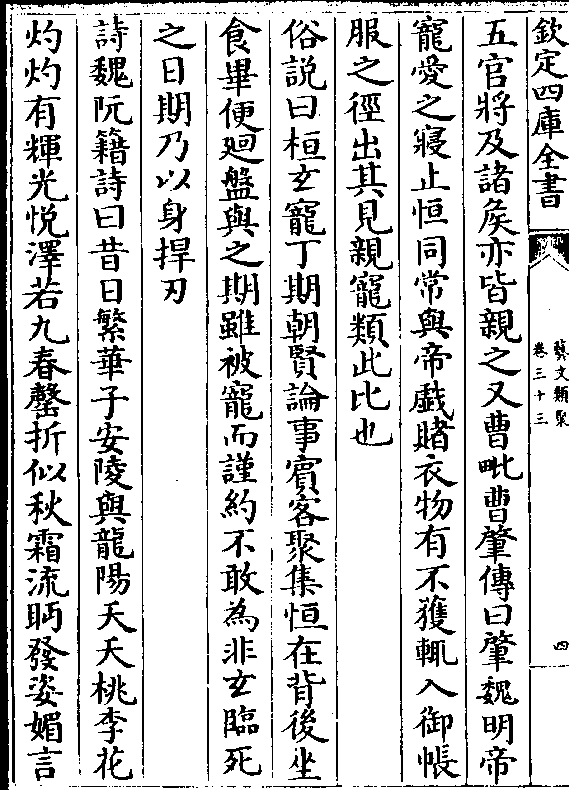 欽定四庫全書
藝文類聚
卷三十三
四
五官將及諸矦亦皆親之又曹毗曹肇傳曰肇魏明帝
寵愛之寢止恒同常與帝戲賭衣物有不獲輒入御帳
服之徑出其見親寵類此比也
俗說曰桓玄寵丁期朝賢論事賓客聚集恒在背後坐
食畢便廻盤與之期雖被寵而謹約不敢為非玄臨死
之日期乃以身捍刃
詩魏阮籍詩曰昔日繁華子安陵與龍陽夭夭桃李花
灼灼有輝光悅澤若九春罄折似秋霜流眄發姿媚言